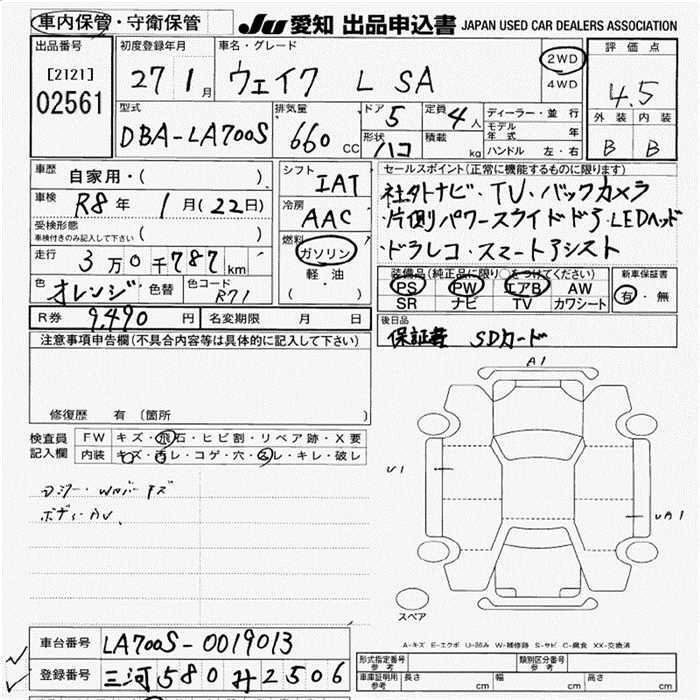 車内保管・守衛保管
JU 愛知 出品申込書 JAPAN USED CAR DEALERS ASSOCIATION
出品番号
[2121]
02561
初度登録年月
27 1月
車名・グレード
ウェイク L SA
2WD
4WD
評価点
4.5
外装 内装
B B
型式
DBA-LA700S
排気量
660 CC
ドア 5
定員 4人
形状 ハコ
積載 kg
ディーラー・並行
モデル年式 年
ハンドル 左・右
車歴 自家用・( )
車検 R8年 1月(22日)
受検形態
車検付きのみ記入して下さい ( )
走行 3万0千787km
色 オレンジ 色替
色コード R71
シフト IAT
冷房 AAC
燃料 ガソリン
軽・油
( ・ )
セールスポイント(正常に機能するものに限ります)
社外ナビ・TV・バックカメラ
・片側パワースライドドア・LEDヘッド
・ドラレコ・スマートアシスト
装備品(純正品に限り○をつけてください)
PS PW エアB AW
SR ナビ TV カワシート
新車保証書
有・無
R券 9,490円
名変期限 月 日
後日品
保証書 SDカード
注意事項申告欄(不具合内容等は具体的に記入して下さい)
修復歴 有(箇所 )
検査員記入欄
FW キズ・飛石・ヒビ割・リペア跡・X要
内装 キズ・汚レ・コゲ・穴・スレ・キレ・破レ
ボディ・AV
A1
U1
UA1
スペア
A-キズ E-エクボ U-凹み W-補修跡 S-サビ C-腐食 XX-交換済
車台番号 LA700S-0019013
登録番号 三河 580 み 2506
形式指定番号 参考
類別区分番号 参考
車庫証明用 参考 長さ cm 幅 cm 高さ cm